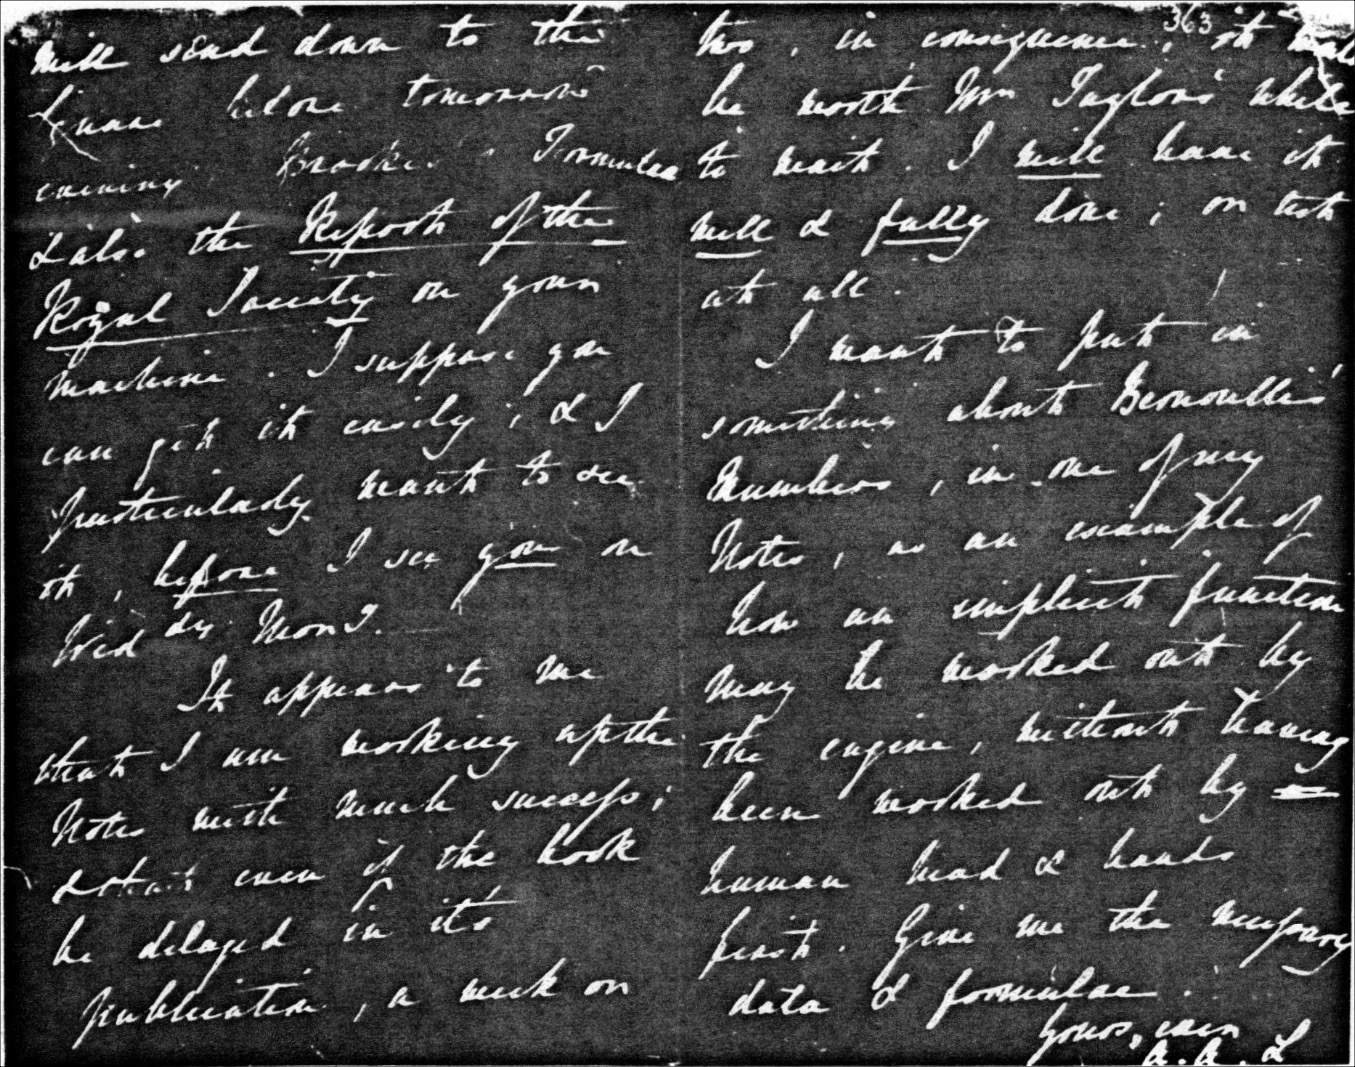 will send down to the
Square before tomorrow
evening Brooke's Formulae
& also the Report of the
Royal Society on your
machine. I suppose you
can get it easily; & I
particularly want to see
it, before I see you on
Wed dy Mong.
It appears to me
that I am working up the
Notes with much success;
& that even if the book
be delayed in its
publication, a week or
363
two, in consequence, it wd
be worth Mr Taylor's while
to wait. I will have it
well & fully done; or not
at all.
I want to put in
something about Bernoulli's
Numbers, in one of my
Notes, as an example of
how an implicit function
may be worked out by
the engine, without having
been worked out by
human head & hands
first. Give me the necessary
data & formulae.
Yours, ever
A. A. L